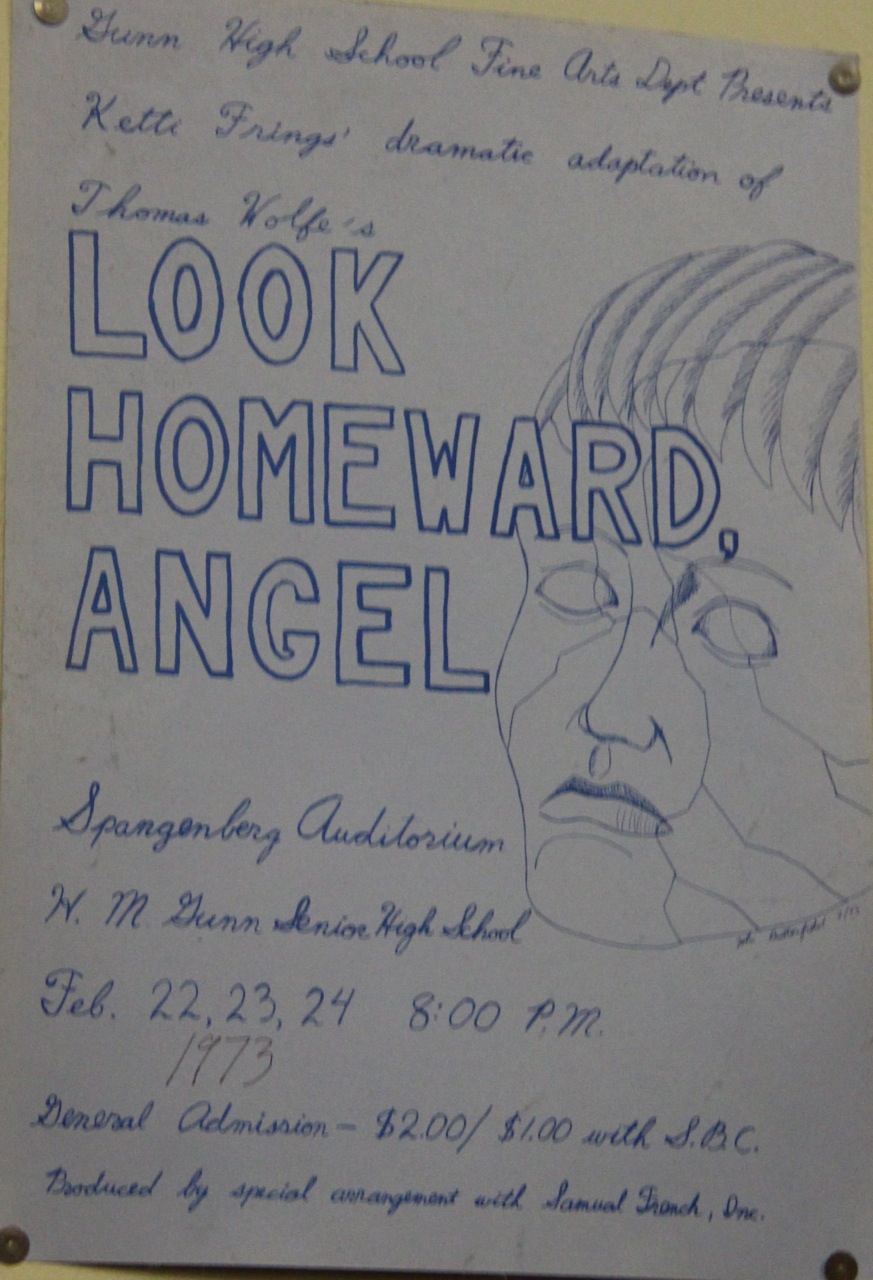 Gunn High School Fine Arts Dept Presents
Ketti Frings' dramatic adaptation of
Thomas Wolfe's
LOOK
HOMEWARD,
ANGEL
Spangenberg Auditorium
H. M Gunn Senior High School
Feb. 22, 23, 24 8:00 P.M.
1973
General Admission - $2.00/ $1.00 with S.B.C.
Produced by special arrangement with Samual French, Inc.